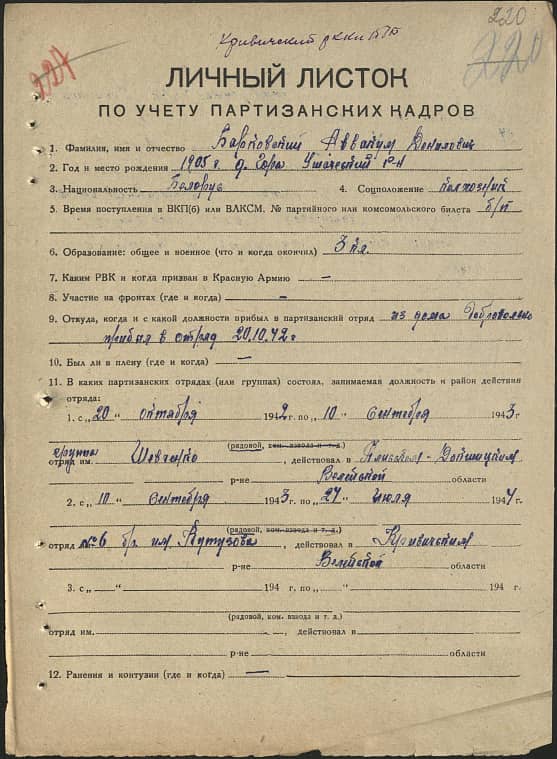 220
227
220
Кривичский
ЛИЧНЫЙ ЛИСТОК
ПО УЧЕТУ ПАРТИЗАНСКИХ КАДРОВ
1. Фамилия, имя и отчество Барковский Аввакум Данилович
2. Год и место рождения 1905 г. д. Гора Ушачский р-н
3. Национальность Белорус 4. Соцположение колхозник
5. Время поступления в ВКП(б) или ВЛКСМ, № партийного или комсомольского билета б/п
6. Образование: общее и военное (что и когда окончил) 3 кл.
7. Каким РВК и когда призван в Красную Армию —
8. Участие на фронтах (где и когда) —
9. Откуда, когда и с какой должности прибыл в партизанский отряд из дома добровольно
прибыл в отряд 20.10.42 г
10. Был ли в плену (где и когда) —
11. В каких партизанских отрядах (или группах) состоял, занимаемая должность и район действия
отряда:
1. с „20“ октября 1942 г. по „10“ сентября 1943 г.
(рядовой, ком. взвода и т. д.)
группа
отряд им. Шевченко, действовал в Плисском-Докшицком
р-не Вилейской области
2. с „10“ сентября 1943 г. по „27“ июля 1944 г.
(рядовой, ком. взвода и т. д.)
отряд №6 бр. им Кутузова, действовал в Кривичском
р-не Вилейской области
3. с „ “ 194 г. по „ “ 194 г.
(рядовой, ком. взвода и т. д.)
отряд им. , действовал в
р-не области
12. Ранения и контузии (где и когда) —